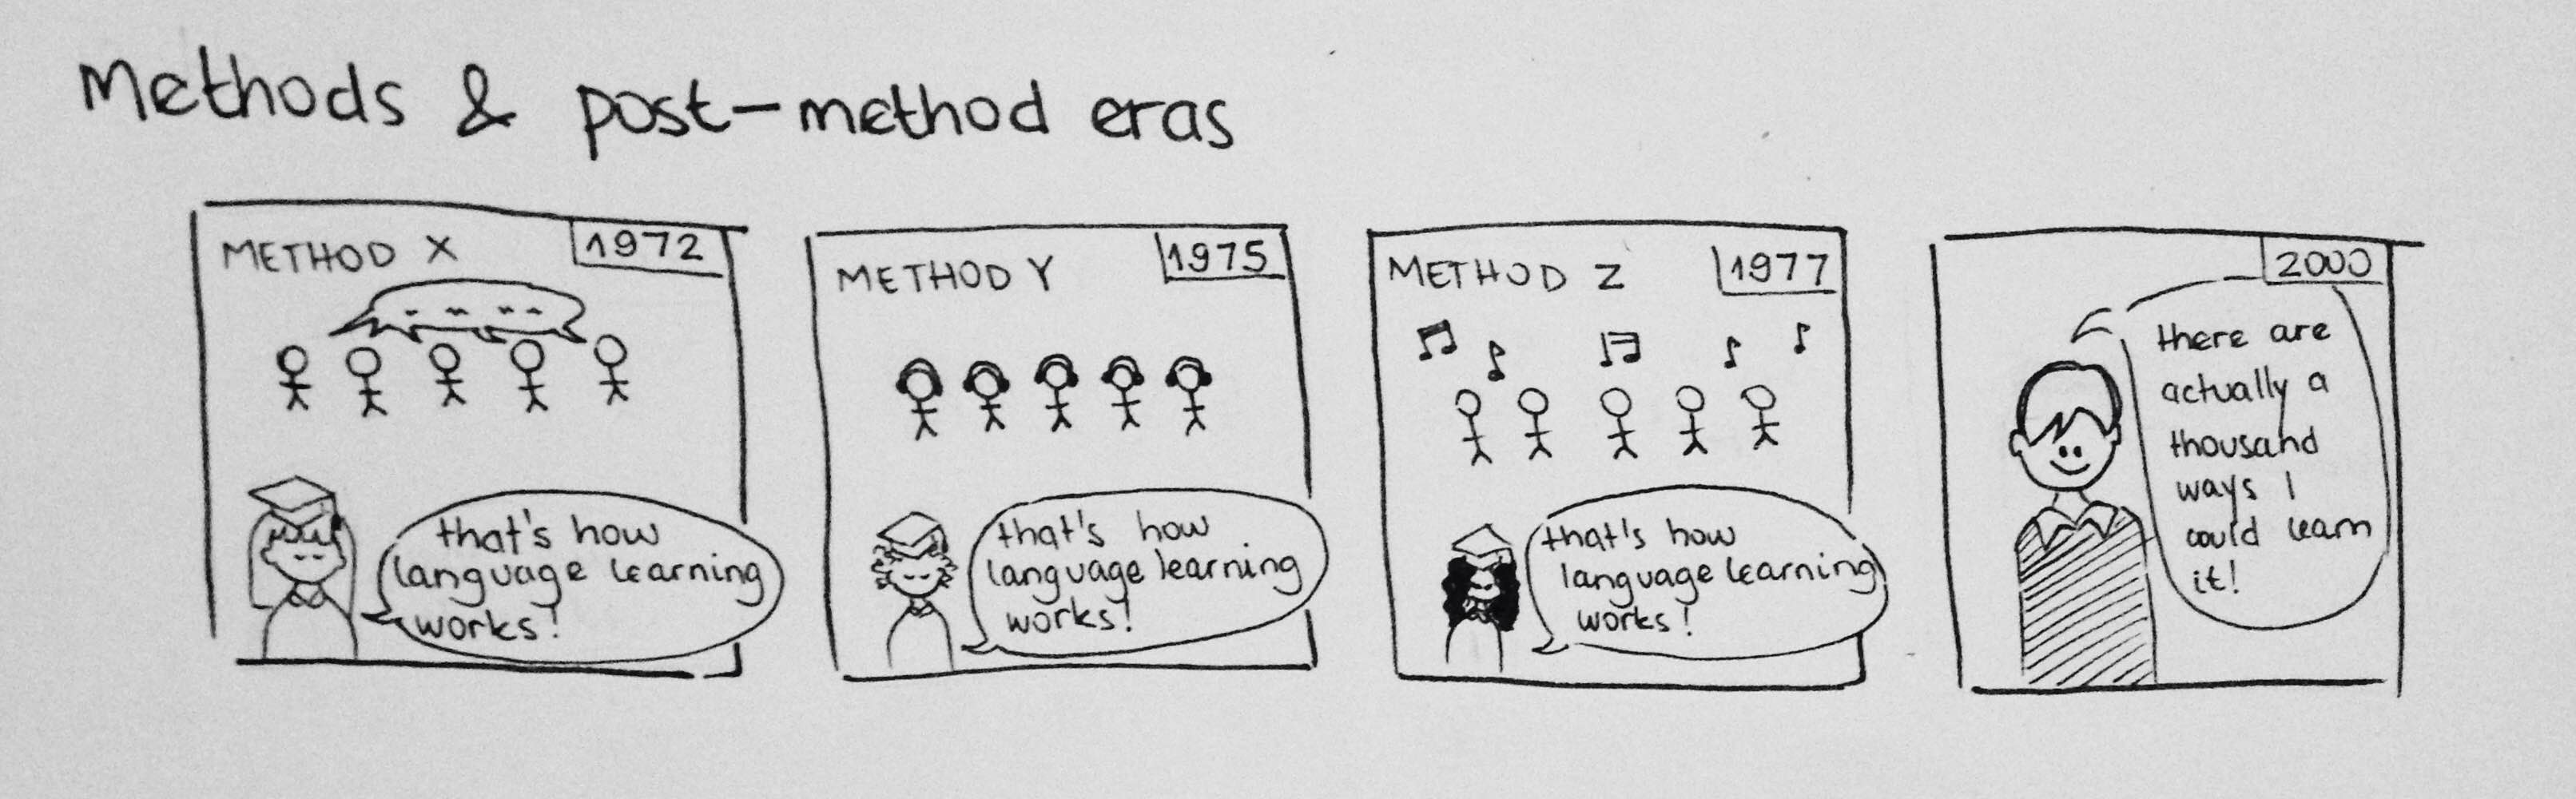 Methods & post-method eras
METHOD X
1972
that's how
language learning
works!
METHOD Y
1975
that's how
language learning
works!
METHOD Z
1977
that's how
language learning
works!
2000
there are
actually a
thousand
ways I
could learn
it!